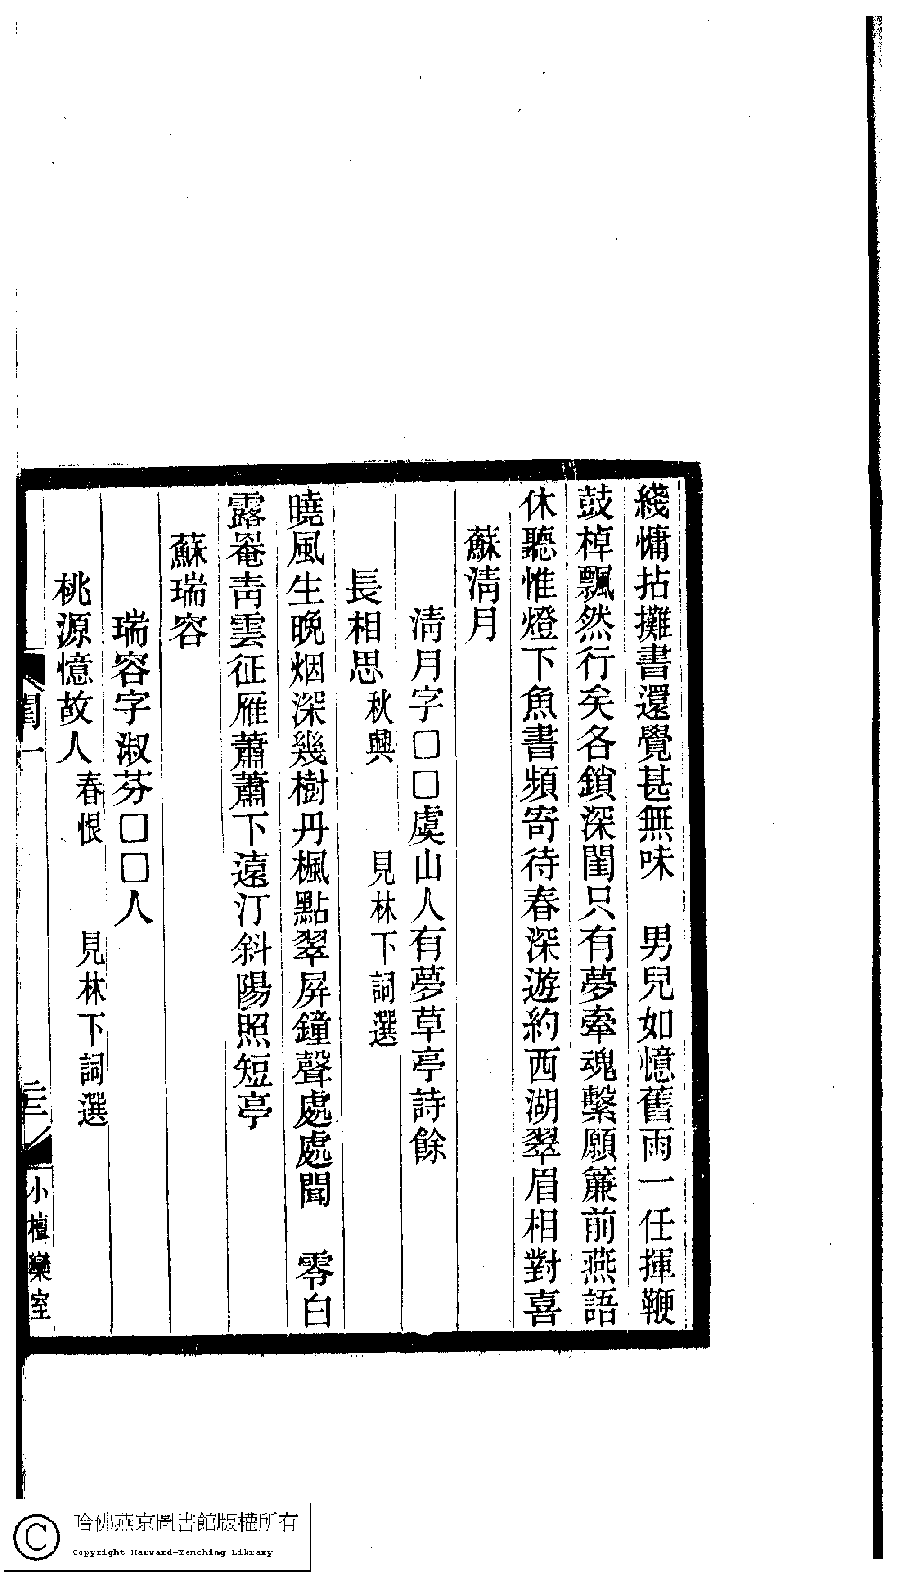 綫慵拈攤書還覺甚無味　男兒如憶舊雨一任揮鞭
鼓棹飄然行矣各鎖深閨只有夢牽魂繫願簾前燕語
休聽惟燈下魚書頻寄待春深遊約西湖翠眉相對喜
蘇淸月
淸月字□□虞山人有夢草亭詩餘
長相思 秋興　見林下詞選
曉風生晚烟深幾樹丹楓點翠屏鐘聲處處聞　零白
露菴靑雲征雁蕭蕭下遠汀斜陽照短亭
蘇瑞容
瑞容字淑芬□□人
桃源憶故人 春恨　見林下詞選
閨一
小檀欒室
哈佛燕京圖書館版權所有
Copyright Harvard-Yenching Library